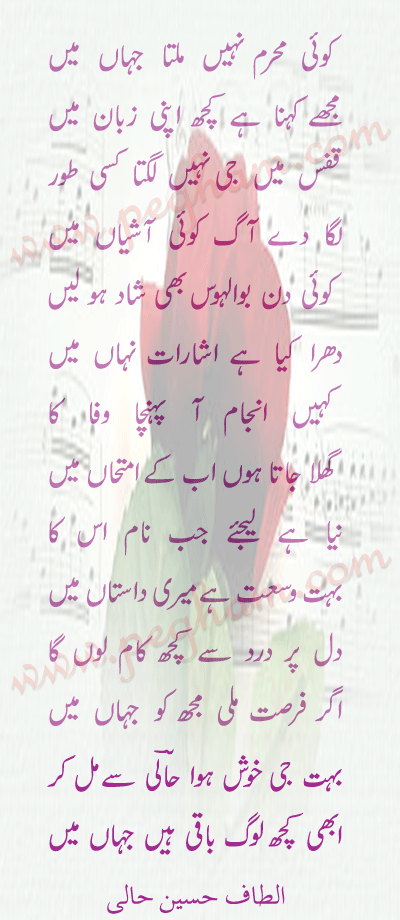 کوئی محرم نہیں ملتا جہاں میں
مجھے کہنا ہے کچھ اپنی زبان میں
قفس میں جی نہیں لگتا کسی طور
لگا دے آگ کوئی آشیاں میں
کوئی دن بوالہوس بھی شاد ہو لیں
دھرا کیا ہے اشارات نہاں میں
کہیں انجام آ پہنچا وفا کا
گھلا جاتا ہوں اب کے امتحاں میں
نیا ہے لیجئے جب نام اس کا
بہت وسعت ہے میری داستاں میں
دل پر درد سے کچھ کام لوں گا
اگر فرصت ملی مجھ کو جہاں میں
بہت جی خوش ہوا حالی سے مل کر
ابھی کچھ لوگ باقی ہیں جہاں میں
الطاف حسین حالی
www.pegham.com
www.pegham.com